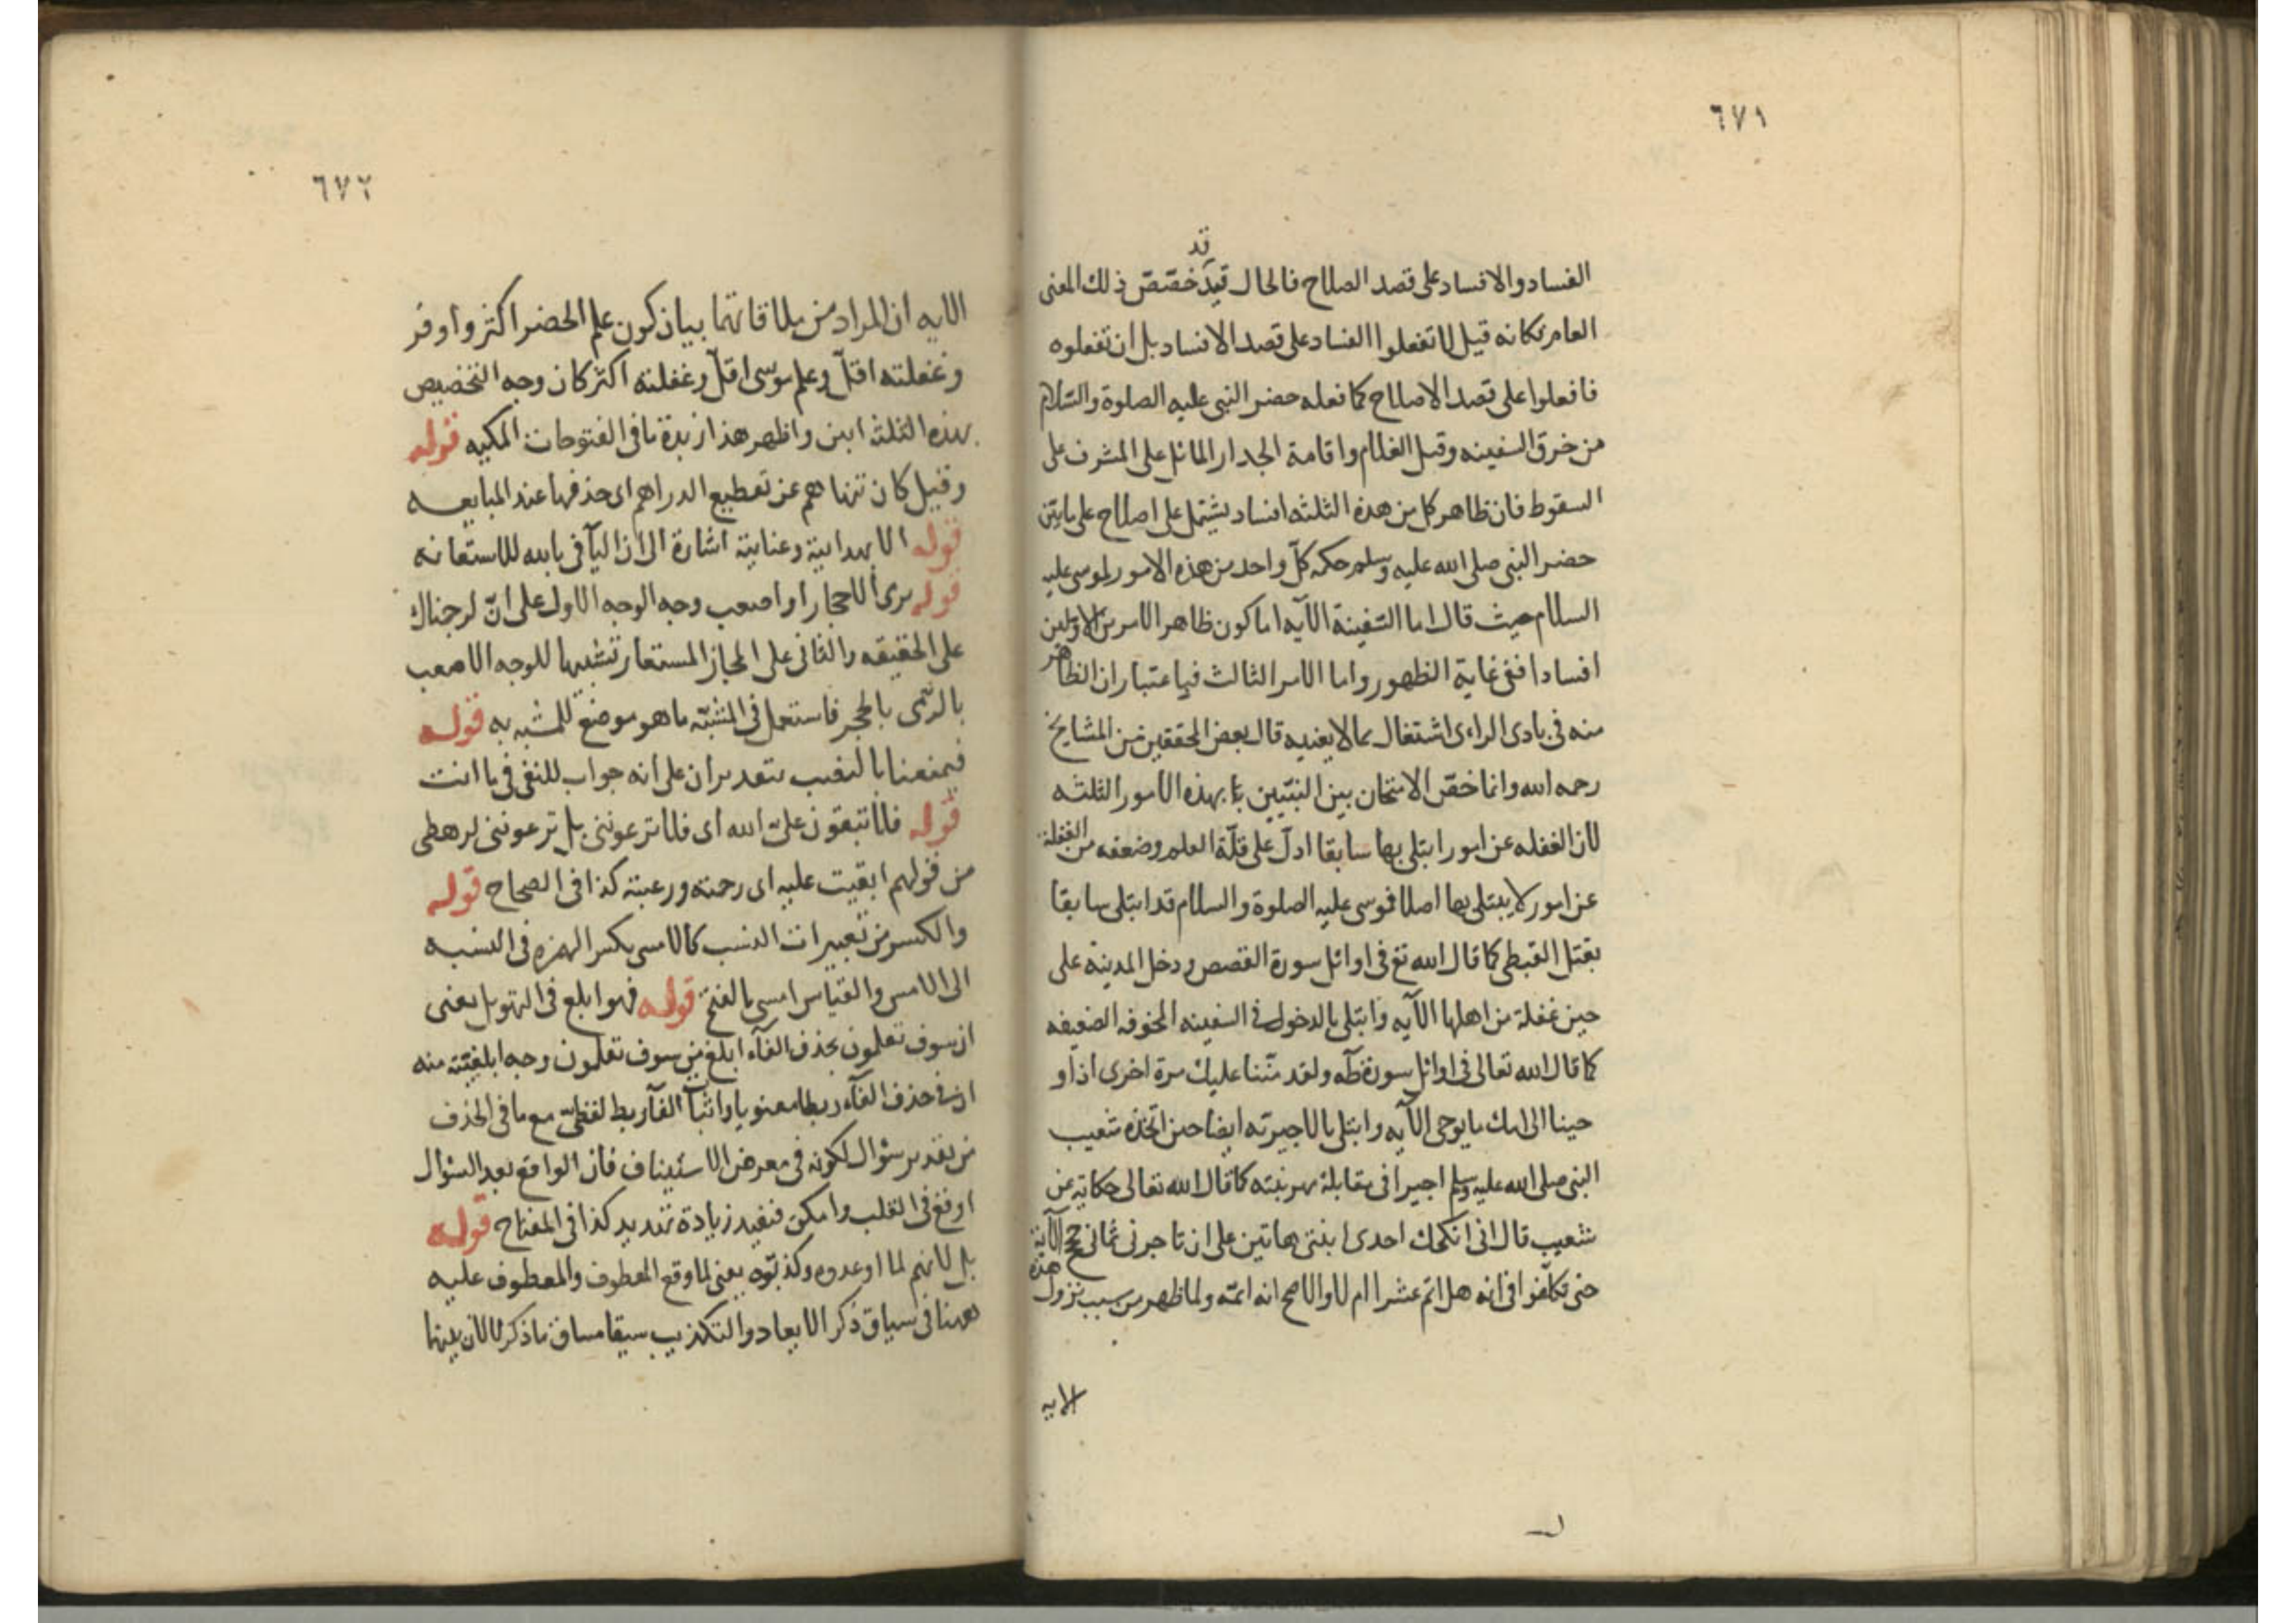 ٦٧١
قد
الفساد والافساد على قصد الصلاح فالحال قيد خصّص ذلك المعنى
العام فكانه قيل لا تفعلوا الفساد على قصد الافساد بل ان تفعلوه
فافعلوا على قصد الاصلاح كما فعله حضر النبى عليه الصلوة والسّلام
من خرق السفينه وقتل الغلام واقامة الجدار المائل على المشرف على
السقوط فان ظاهر كل من هذه الثلثه افساد يشتمل على اصلاح على ما بيّن
حضر النبى صلى الله عليه وسلم حكم كلّ واحد من هذه الامور لموسى عليه
السلام حيث قال اما السّفينة الآيه اما كون ظاهر الامرين الاوّلين
افسادا ففى غاية الظهور واما الامر الثالث فباعتبار ان الظاهر
منه فى بادى الراءى اشتغال بما لا يعنيه قال بعض المحققين من المشايخ
رحمه الله وانما خصّ الامتحان بين النبيّين بهذه الامور الثلثه
لان الغفله عن امور ابتلى بها سابقا ادلّ على قلّة العلم وضعفه من الغفلة
عن امور لا يبتلى بها اصلا فموسى عليه الصلوة والسلام قد ابتلى سابقا
بقتل القبطى كما قال الله تع فى اوائل سورة القصص ودخل المدينه على
حين غفلة من اهلها الآيه وابتلى بالدخول فى السفينه المخوفه الضعيفه
كما قال الله تعالى فى اوائل سورة طه ولقد منّنا عليك مرة اخرى اذ او
حينا الى امك ما يوحى الآيه وابتلى بالاجيريّه ايضا حين اتّخذه شعيب
النبى صلى الله عليه وسلم اجيرا فى مقابلة مهر بنته كما قال الله تعالى حكاية عن
شعيب قال انى انكحك احدى ابنتى هاتين على ان تاجرنى ثمانى حجج الآية
حتى تكلّموا فى انه هل اتم عشرا ام لا والاصح انه اتمّه ولما ظهر من سبب نزول هذه
الايه
٦٧٢
الايه ان المراد من ملاقاتهما بيان كون علم الحضر اكثر واوفر
وغفلته اقلّ وعلم موسى اقلّ وغفلته اكثر كان وجه التخصيص
بهذه الثلثه ابين واظهر هذا زبدة ما فى الفتوحات المكيه قوله
وقيل كان تنهاهم عن تقطيع الدراهم اى حذفها عند المبايعه
قوله الا بهدايتة وعناية اشارة الى ان البآ فى بالله للاستعانه
قوله برى الاحجار او اصعب وجه الوجه الاول على انّ لرجمناك
على الحقيقه والثانى على المجاز المستعار تشبيها للوجه الاصعب
بالرّمى بالحجر فاستعمل فى المشبّه ما هو موضع للمشبه به قوله
فيمنعنا بالنصب بتقدير ان على انه جواب للنفى فى ما انت
قوله فلا تبقون علىّ الله اى فلا ترعوننى بل ترعوننى لرهطى
من قولهم ابقيت عليه اى رحمته ورعيته كذا فى الصحاح قوله
والكسر من تغييرات النسب كالامسى بكسر الهمزه فى النسبه
الى الامس والقياس امسى بالفتح قوله فهو ابلغ فى التهويل يعنى
ان سوف تعلمون بحذف الفآء ابلغ من سوف تعلمون وجه ابلغيّته منه
ان فى حذف الفآء ربطا معنويا واثبات الفآ ربط لفظىّ مع ما فى الحذف
من تقدير سؤال لكونه فى معرض الاستيناف فان الواقع بعد السؤال
اوقع فى القلب وامكن فيفيد زيادة تهديد كذا فى المفتاح قوله
بل لانهم لما اوعدوه وكذبّوه يعنى لما وقع المعطوف والمعطوف عليه
ههنا فى سياق ذكر الايعاد والتكذيب سيقا مساق ما ذكر لا لان بينهما